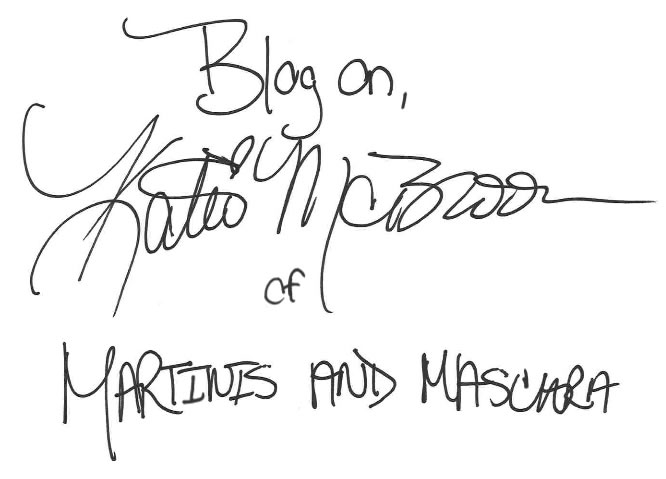 Blog on,
Katie McBroom
of
MARTINIS AND MASCARA